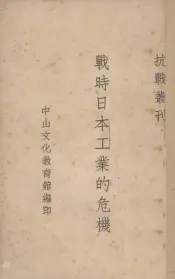 抗戰叢刊
戰時日本工業的危機
中山文化教育館編印